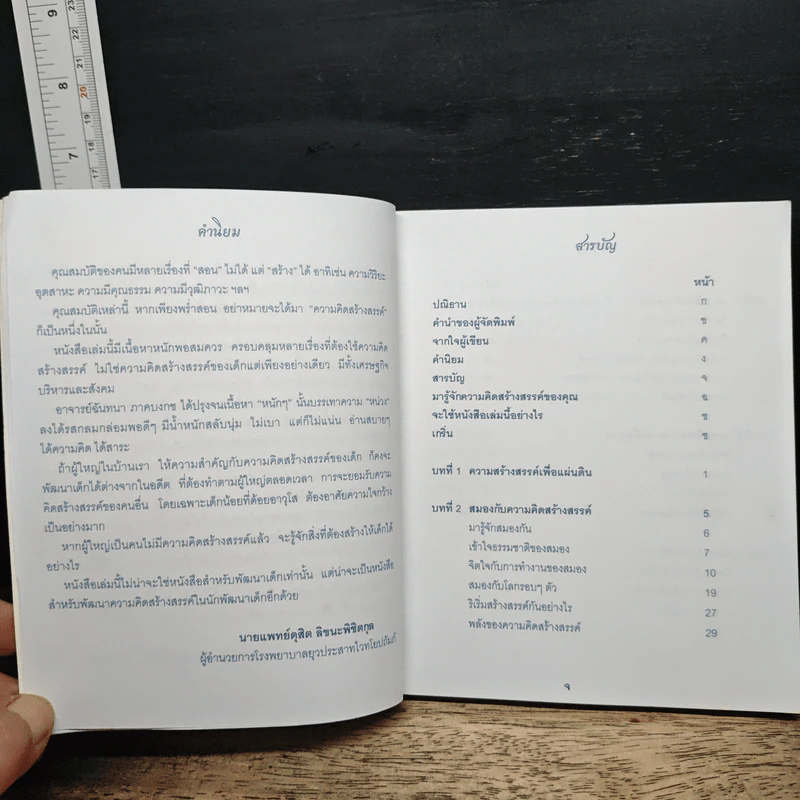 9
23
22
21
8
20
19
18
7
17
คำนิยม
คุณสมบัติของคนมีหลายเรื่องที่ “สอน” ไม่ได้ แต่ “สร้าง” ได้ อาทิเช่น ความวิริยะ
อุตสาหะ ความมีคุณธรรม ความมีวุฒิภาวะ ฯลฯ
คุณสมบัติเหล่านี้ หากเพียงพร่ำสอน อย่าหมายจะได้มา “ความคิดสร้างสรรค์”
ก็เป็นหนึ่งในนั้น
หนังสือเล่มนี้มีเนื้อหาหนักพอสมควร ครอบคลุมหลายเรื่องที่ต้องใช้ความคิด
สร้างสรรค์ ไม่ใช่ความคิดสร้างสรรค์ของเด็กแต่เพียงอย่างเดียว มีทั้งเศรษฐกิจ
บริหารและสังคม
อาจารย์ฉันทนา ภาคบงกช ได้ปรุงจนเนื้อหา “หนักๆ” นั้นบรรเทาความ “หน่วง”
ลงได้รสกลมกล่อมพอดีๆ มีน้ำหนักสลับนุ่ม ไม่เบา แต่ก็ไม่แน่น อ่านสบายๆ
ได้ความคิด ได้สาระ
ถ้าผู้ใหญ่ในบ้านเรา ให้ความสำคัญกับความคิดสร้างสรรค์ของเด็ก ก็คงจะ
พัฒนาเด็กได้ต่างจากในอดีต ที่ต้องทำตามผู้ใหญ่ตลอดเวลา การจะยอมรับความ
คิดสร้างสรรค์ของคนอื่น โดยเฉพาะเด็กน้อยที่ด้อยอาวุโส ต้องอาศัยความใจกว้าง
เป็นอย่างมาก
หากผู้ใหญ่เป็นคนไม่มีความคิดสร้างสรรค์แล้ว จะรู้จักสิ่งที่ต้องสร้างให้เด็กได้
อย่างไร
หนังสือเล่มนี้ไม่น่าจะใช่หนังสือสำหรับพัฒนาเด็กเท่านั้น แต่น่าจะเป็นหนังสือ
สำหรับพัฒนาความคิดสร้างสรรค์ในนักพัฒนาเด็กอีกด้วย
นายแพทย์ดุสิต ลิขนะพิชิตกุล
ผู้อำนวยการโรงพยาบาลยุวประสาทไวทโยปถัมภ์
สารบัญ
หน้า
ปณิธาน ก
คำนำของผู้จัดพิมพ์ ข
จากใจผู้เขียน ค
คำนิยม ง
สารบัญ จ
มารู้จักความคิดสร้างสรรค์ของคุณ ฉ
จะใช้หนังสือเล่มนี้อย่างไร ช
เกริ่น ซ
บทที่ 1 ความสร้างสรรค์เพื่อแผ่นดิน 1
บทที่ 2 สมองกับความคิดสร้างสรรค์ 5
มารู้จักสมองกัน 6
เข้าใจธรรมชาติของสมอง 7
จิตใจกับการทำงานของสมอง 10
สมองกับโลกรอบๆ ตัว 19
ริเริ่มสร้างสรรค์กันอย่างไร 27
พลังของความคิดสร้างสรรค์ 29
จ